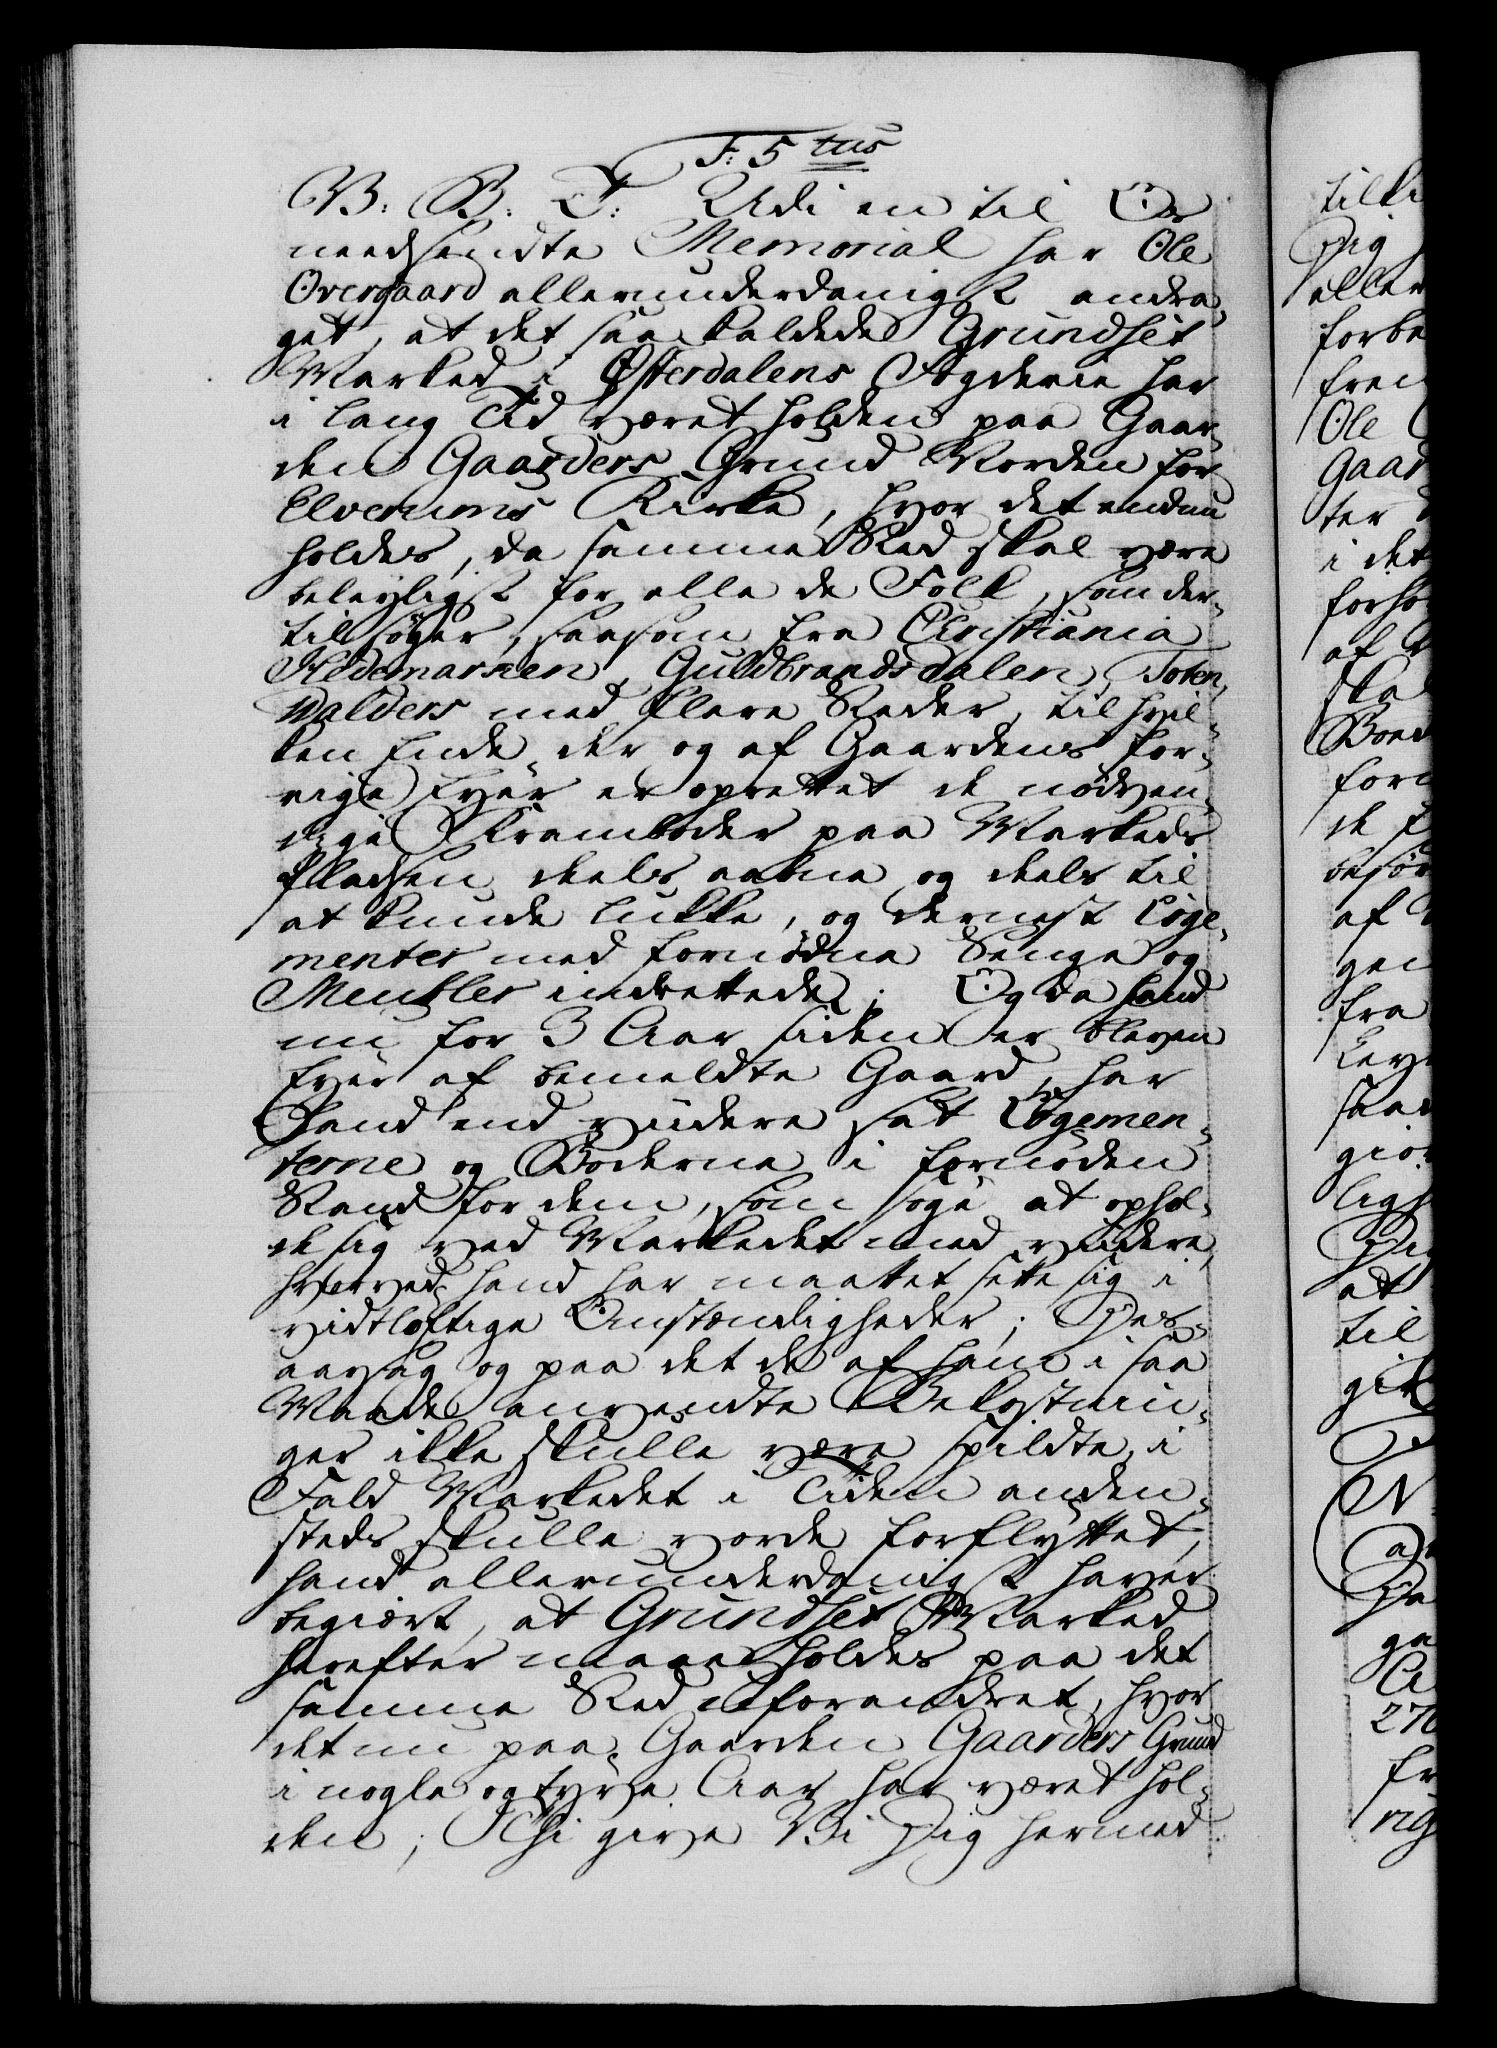 F: 5 tus
V: B: T: Udi en til Os
needsendte Memorial har Ole
Overgaard allerunderdanigst andra¬
get, at det saa kaldede Grundset
Marked i Østerdalens Fogderie har
i lang Tid været holden paa Gaar¬
den Gaarders Grund Norden for
Elverums Kirke, hvor det endnu
holdes, da samme Sted skal være
beleyligst for alle de Folk, som der¬
til søger, saasom fra Christiania
Hedemarken, Guldbrandsdalen, Toten,
Walders med flere Steder, til hvil¬
ken Ende der og af Gaardens for¬
rige Eyer er oprettet de nødven¬
dige Kramboder paa Markeds
Pladsen, deels aabne og deels til
at kunde lukke, og dernest Loge¬
menter med fornødne Senge og
Meubler indrettede; Og da hand
nu for 3 Aar siden er bleven
Eyer af bemeldte Gaard, har
Hand end viidere sat Logemen¬
terne og Boderne i fornøden
Stand for dem, som søge at ophol¬
de sig ved Markedet med viidere,
hvorved hand har maattet sette sig i
vidtløftige Omstændigheder; Des¬
aarsag og paa det de af ham i saa
Maade anvendte Bekostnin¬
ger ikke skulle være spildte, i
Fald Markedet i Tiden anden¬
steds skulle vorde forflyttet,
hand allerunderdanigst haver
begiært, at Grundset Marked
herefter maae holdes paa det
samme Sted uforandret, hvor
det nu paa Gaarden Gaarders Grund
i nogle og tyve Aar har været hol¬
den; Thi give Vi Dig hermed